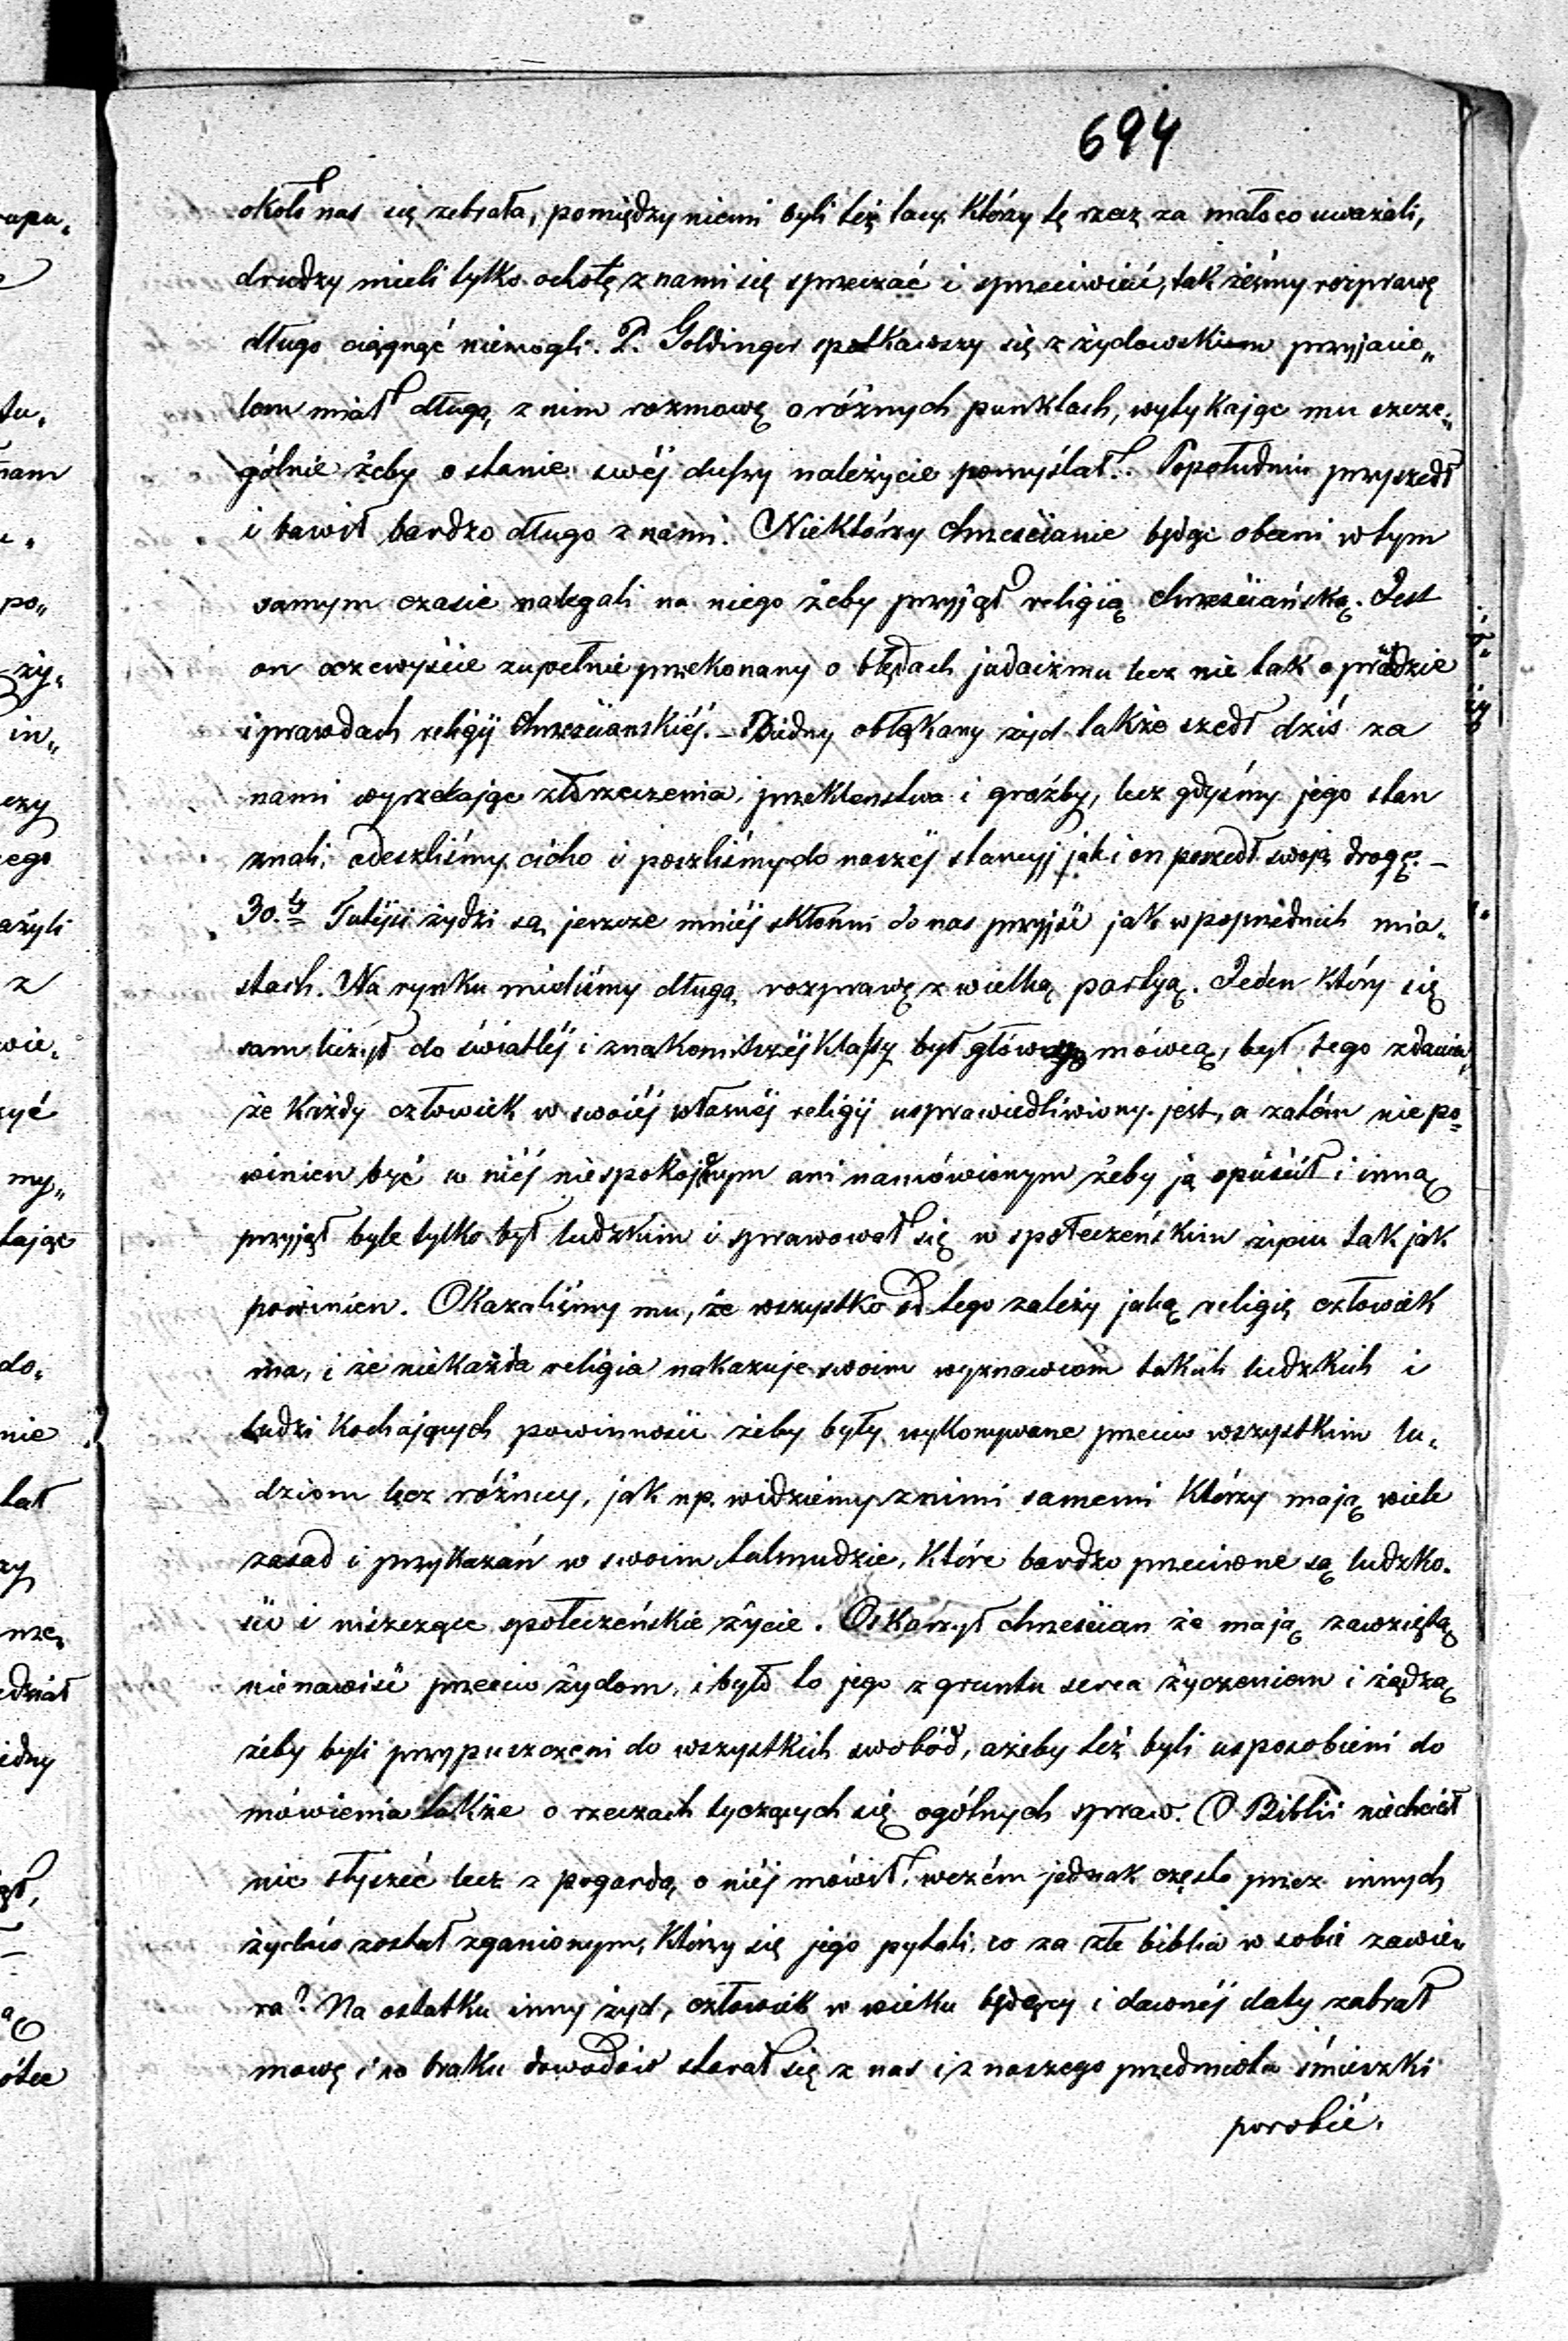 694
około nas się zebrała, pomiędzy niemi byli też tacy którzy tę rzecz za mało co uważali,
drudzy mieli tylko ochotę z nami się sprzeczać i sprzeciwieć, tak żeśmy rozprawę
długo ciągnąć niemogli. P. Goldinger spotkawszy się z żydowskiem przyjacie„
lem miał długą z nim rozmowę o różnych punktach, wytykając mu szcze„
gólnie żeby o stanie swéj duszy należycie pomyślał. Popołudniu przyszedł
i bawił bardzo długo z nami. Niektórzy chrześcianie będąc obecni w tym
samym czasie nalegali na niego żeby przyjął religią chrześciańską. Jest
on oczewyście zupełnie przekonany o błędach judaizmu lecz nie tak o prawdzie
i prawdach religij chrześcianskiéj. – Biédny obłąkany żyd także szedł dziś za
nami wyrzekając złorzeczenia, przeklenstwa i groźby, lecz gdyśmy jego stan
znali, odeszliśmy cicho i poszliśmy do naszéj stancyj jak i on poszedł swoją drogę. –
30.ty Tutéjsi żydzi są jeszcze mniéj skłonni do nas przyjść jak w poprzédnich mia„
stach. Na rynku mieliśmy długą rozprawę z wielką partyą. Jeden który się
sam liczył do światłéj i znakomitszéj klassy był głównym mówcą, był tego zdania,
że każdy człowiek w swoiéj własnéj religij usprawiedliwiony jest, a zatém nie po„
winien być w niéj niespokojnym ani namówionym żeby ją opuścił i inną
przyjął byle tylko był ludzkim i sprawował się w społeczeńskim życiu tak jak
powinien. Okazaliśmy mu, że wszystko od tego zależy jaką religię człowiek
ma, i że niekażda religia nakazuje swoim wyznawcom takich ludzkich i
ludzi kochających powinności żeby były wykonywane przeciw wszystkim lu„
dziom bez różnicy, jak np. widziemy z nimi samemi którzy mają wiele
zasad i przykazań w swoim talmudzie, które bardzo przeciwne są ludzko„
ści i niszczące społeczeńskie życie. Oskarżył chrześcian że mają zawziętą
nienawiść przeciw żydom, i było to jego z gruntu serca życzeniem i żądzą
żeby byli przypuszczeni do wszystkich swobód, ażeby też byli usposobieni do
mówienia także o rzeczach tyczących się ogólnych spraw. O Biblii niechciał
nic słyszéć lecz z pogardą o niéj mówił, wczém jednak często przez innych
żydów został zganionym, którzy się jego pytali, co za złe biblia w sobie zawie„
ra? Na ostatku inny żyd, człowiek w wieku będący i dawnéj daty zabrał
mowę i na braku dowodów starał się z nas i z naszego przedmiotu śmieszki
porobić.